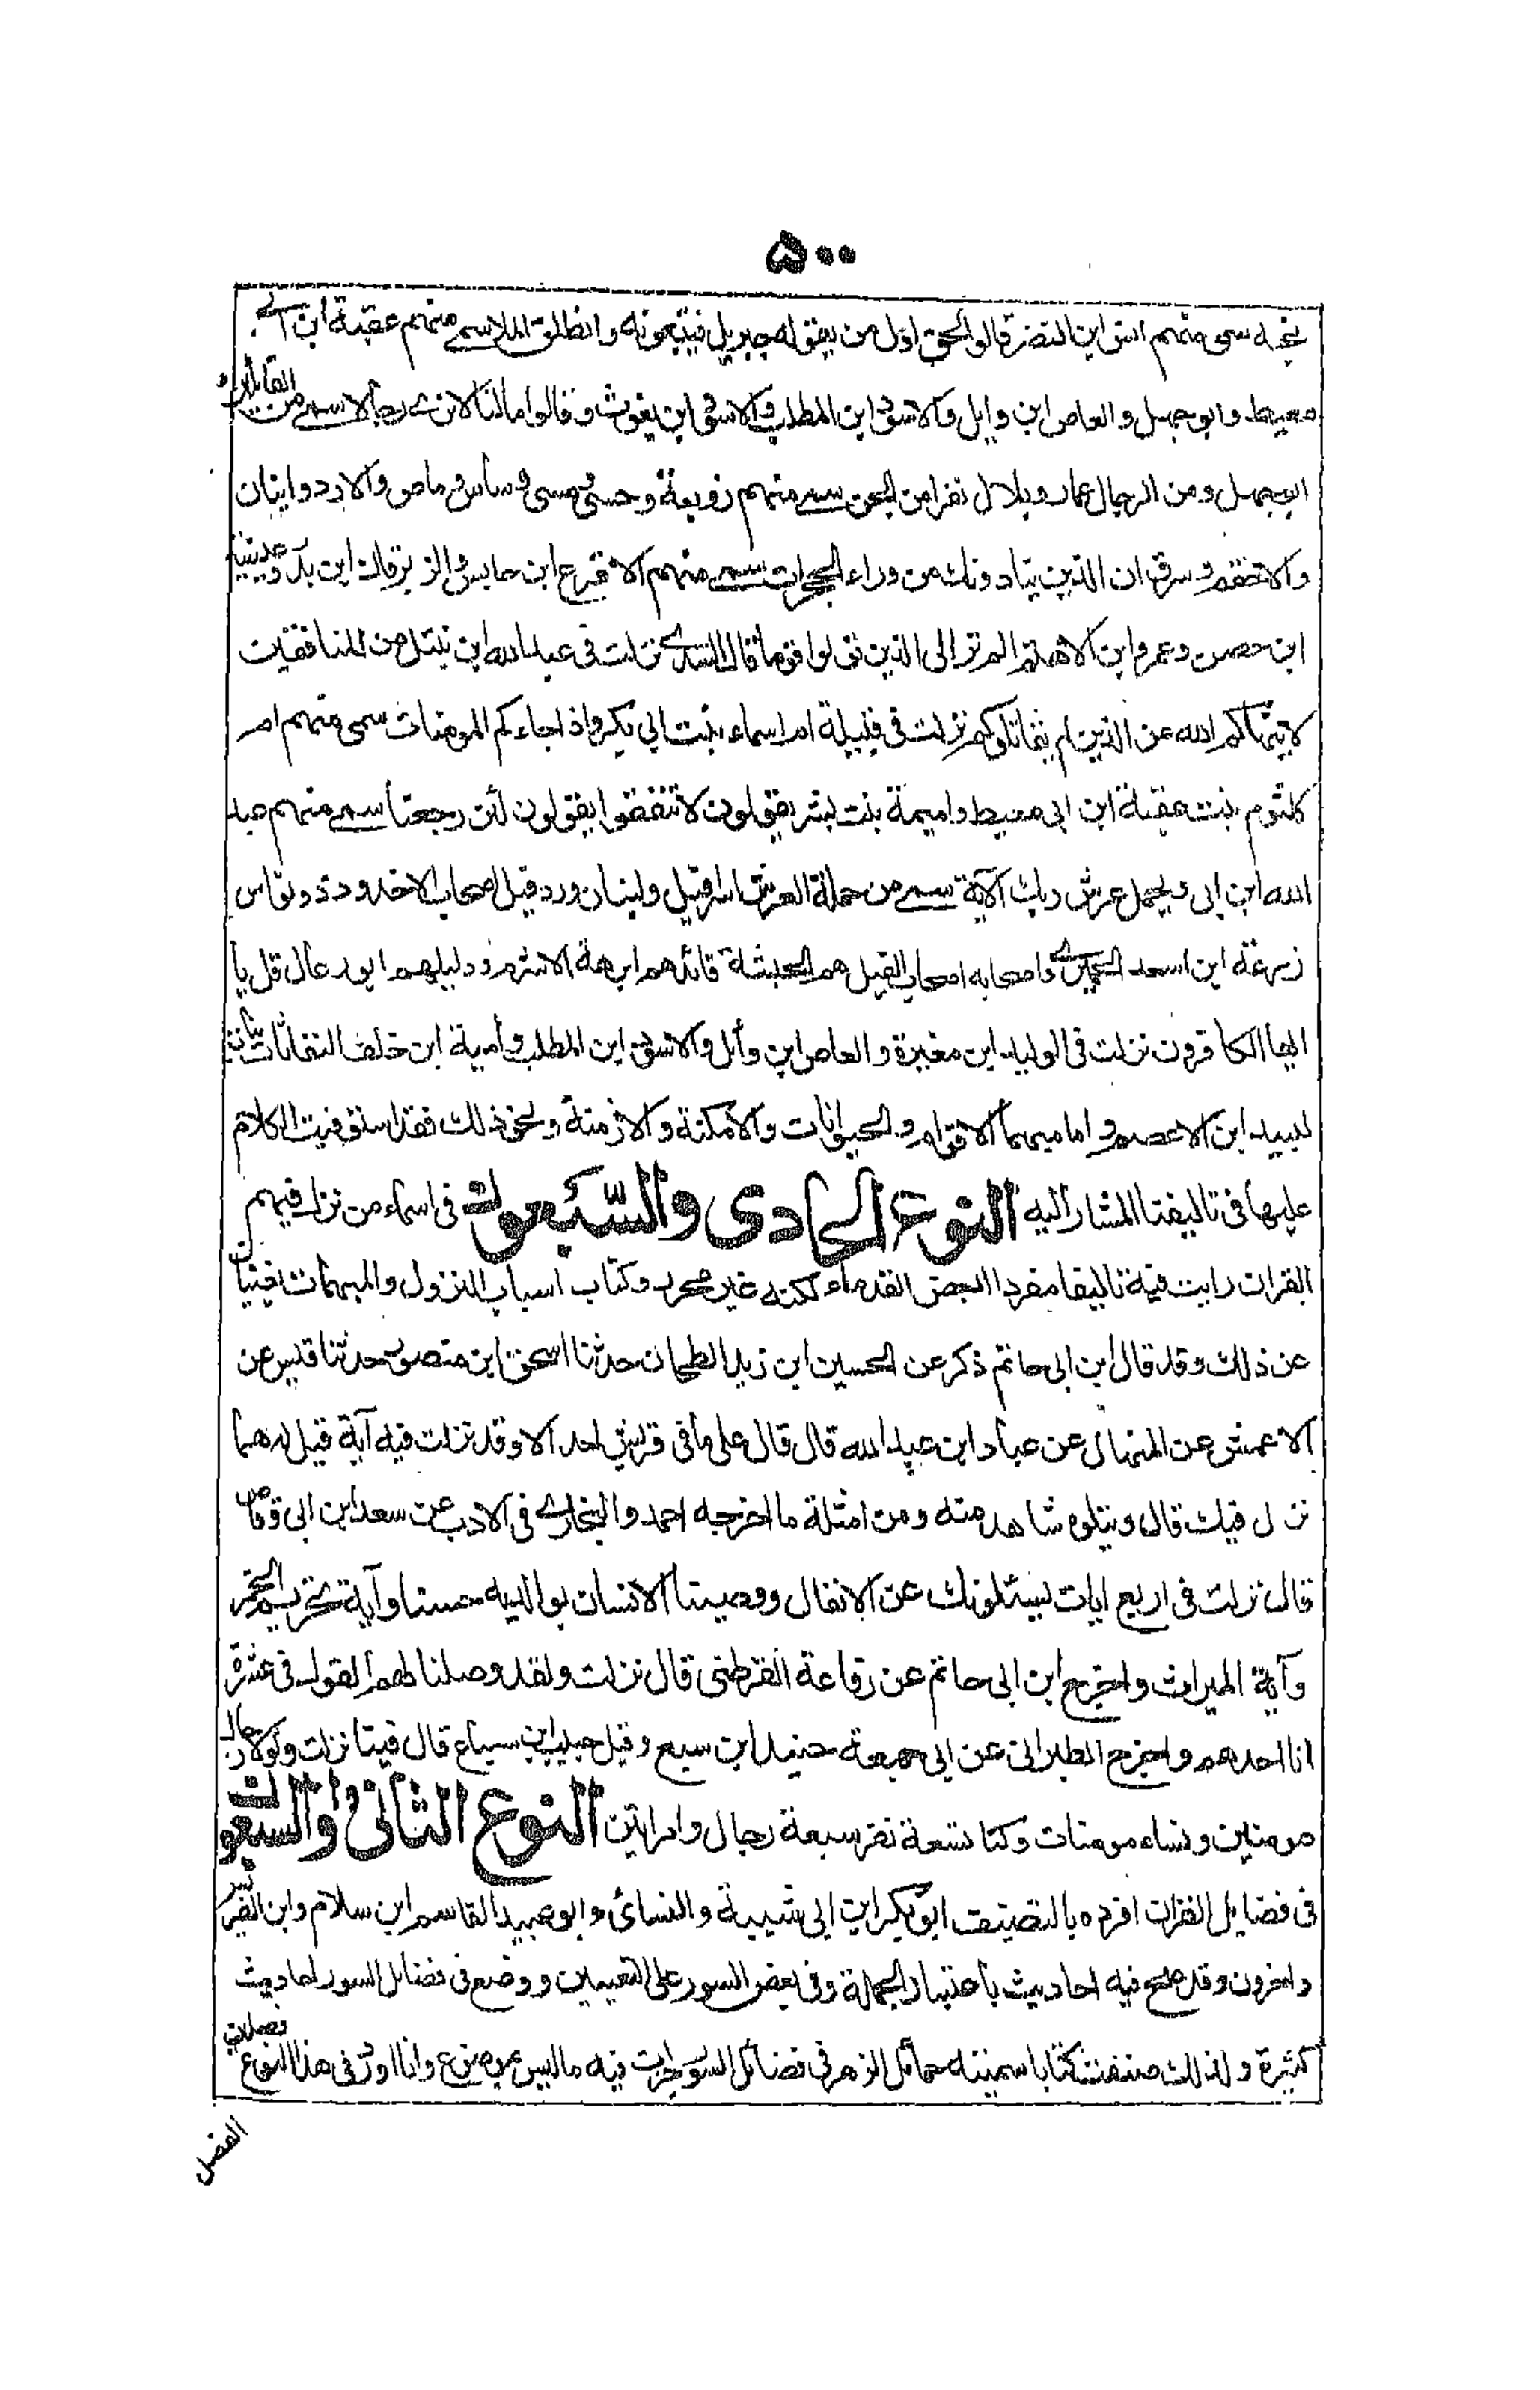 ۵۰۰
نحبه سمى منهم انس ابن النضر قالوا الحق اول من يقوله جبريل فيتبعونه وانطلق الملا سمے منهم عقبة ابن ابے
معيط وابو جهل والعاص ابن وايل والاسود ابن المطلب والاسود ابن يغوث وقالوا مالنا لا نرے رجالا سمے من القائلين
ابو جهل ومن الرجال عمار وبلال نفرا من الجن سمے منهم زوبعة وحسى ومسى وشاس وماص والارد واينان
والاحقم وسرق ان الذين ينادونك من وراء الحجرات سمے منهم الاقرع ابن حابس والزبرقان ابن بدر وعيينة
ابن حصن وعمرو ابن الاهتم الم تر الى الذين تولوا قوما قال السدے نزلت فى عبد الله ابن نبتل من المنافقين
لا ينهاكم الله عن الذين لم يقاتلوكم نزلت فى قتيلة ام اسماء بنت ابى بكر واذا جاءكم المومنات سمى منهم ام
كلثوم بنت عقبة ابن ابى معيط واميمة بنت بشر يقولون لا تنفقوا يقولون لئن رجعنا سمے منهم عبد
الله ابن ابى ويحمل عرش ربك الآية سمے من حملة العرش اسرافيل ولبنان وردفيل اصحاب الاخدود ذو نواس
زرعة ابن اسعد الحميرى واصحابه اصحاب الفيل هم الحبشة قائدهم ابرهة الاشرم ودليلهم ابو رغال قل يا
ايها الكافرون نزلت فى الوليد ابن مغيرة والعاص ابن وائل والاسود ابن المطلب وامية ابن خلف النفاثات بنات
لبيد ابن الاعصم واما مبهما الاقوام والحيوانات والامكنة والازمنة ونحو ذلك فقد استوفيت الكلام
عليها فى تاليفنا المشار اليه النوع الحادى والسبعون فى اسماء من نزل فيهم
القران رايت فيه تاليفا مفردا لبعض القدماء لكنه غير محرر وكتاب اسباب النزول والمبهمات يغنيان
عن ذلك وقد قال ابن ابى حاتم ذكر عن الحسين ابن زيد الطحان حدثنا اسحق ابن منصور حدثنا قيس عن
الاعمش عن المنهال عن عباد ابن عبد الله قال قال على ما فى قريش احد الا وقد نزلت فيه آية قيل له ما
نزل فيك قال ويتلوه شاهد منه ومن امثلة ما اخرجه احمد والبخارے فى الادب عن سعد ابن ابى وقاص
قال نزلت فى اربع ايات يسئلونك عن الانفال ووصينا الانسان بوالديه حسنا وآية تحريم الخمر
وآية الميراث واخرج ابن ابى حاتم عن رفاعة القرظى قال نزلت ولقد وصلنا لهم القول فى عشرة
انا احدهم واخرج الطبرانى عن ابى جمعة جنيد ابن سبع وقيل حبيب ابن سباع قال فينا نزلت ولولا رجال
مومنين ونساء مومنات وكنا تسعة نفر سبعة رجال وامراتين النوع الثانى والسبعون
فى فضايل القران افرده بالتصنيف ابو بكر ابن ابى شيبة والنسائ وابو عبيد القاسم ابن سلام وابن الضريس
واخرون وقد صح فيه احاديث باعتبار الجملة وفى بعض السور على التعيين ووضع فى فضائل السور احاديث
كثيرة ولذلك صنفت كتابا سميته حمائل الزهر فى فضائل السور حررت فيه ما ليس بموضوع وانا اورد فى هذا النوع فصلان
الفضل